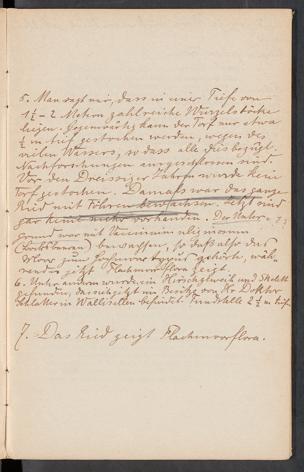 5. Man sagt mir, dass in einer Tiefe von
1½ – 2 Metern zahlreiche Wurzelstöcke
liegen. Gegenwärtig kann der Torf nur etwa
½ m tief gestochen werden, wegen des
vielen Wassers, so dass alle diesbezügl.
Nachforschungen ausgeschlossen sind
Vor den Dreissiger Jahren wurde kein
Torf gestochen. Damals war das ganze
Ried mit Föhren bewachsen. Jetzt sind
gar keine mehr vorhanden. Der Unter-
grund war mit Vaccinium uliginosum
bewachsen, so daß also das
Moor zum gehörte, wäh-
rend es jetzt Flachmoorflora zeigt.
6. Unter andern wurde ein Hirschgeweih und Skelett
gefunden, das sich jetzt im Besitze von Hr. Doktor
Schlatter in Wallisellen befindet. Fundstelle 2½ m tief.
7. Das Ried zeigt Flachmoorflora.